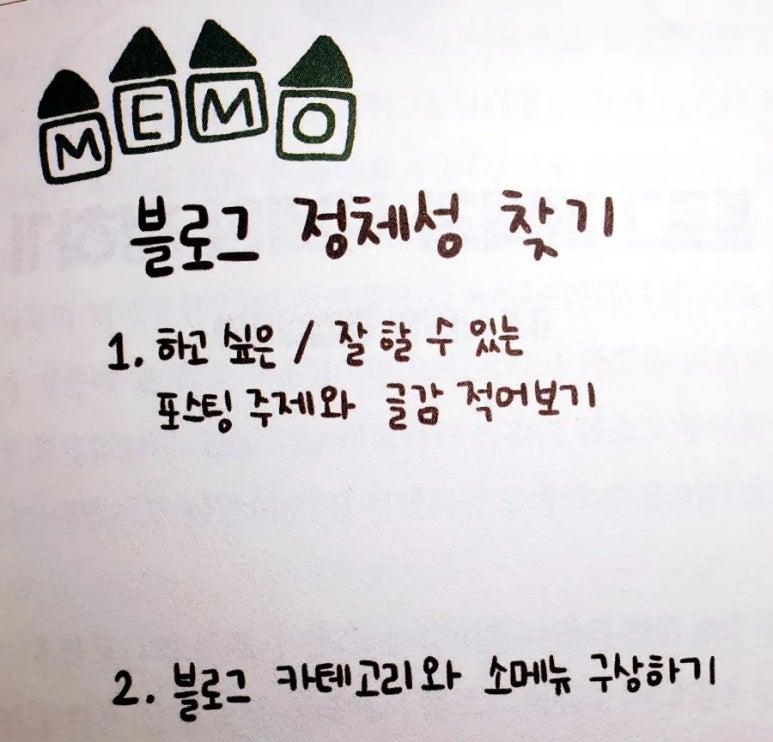 MEMO
블로그 정체성 찾기
1. 하고 싶은 / 잘 할 수 있는
포스팅 주제와 글감 적어보기
2. 블로그 카테고리와 소메뉴 구상하기